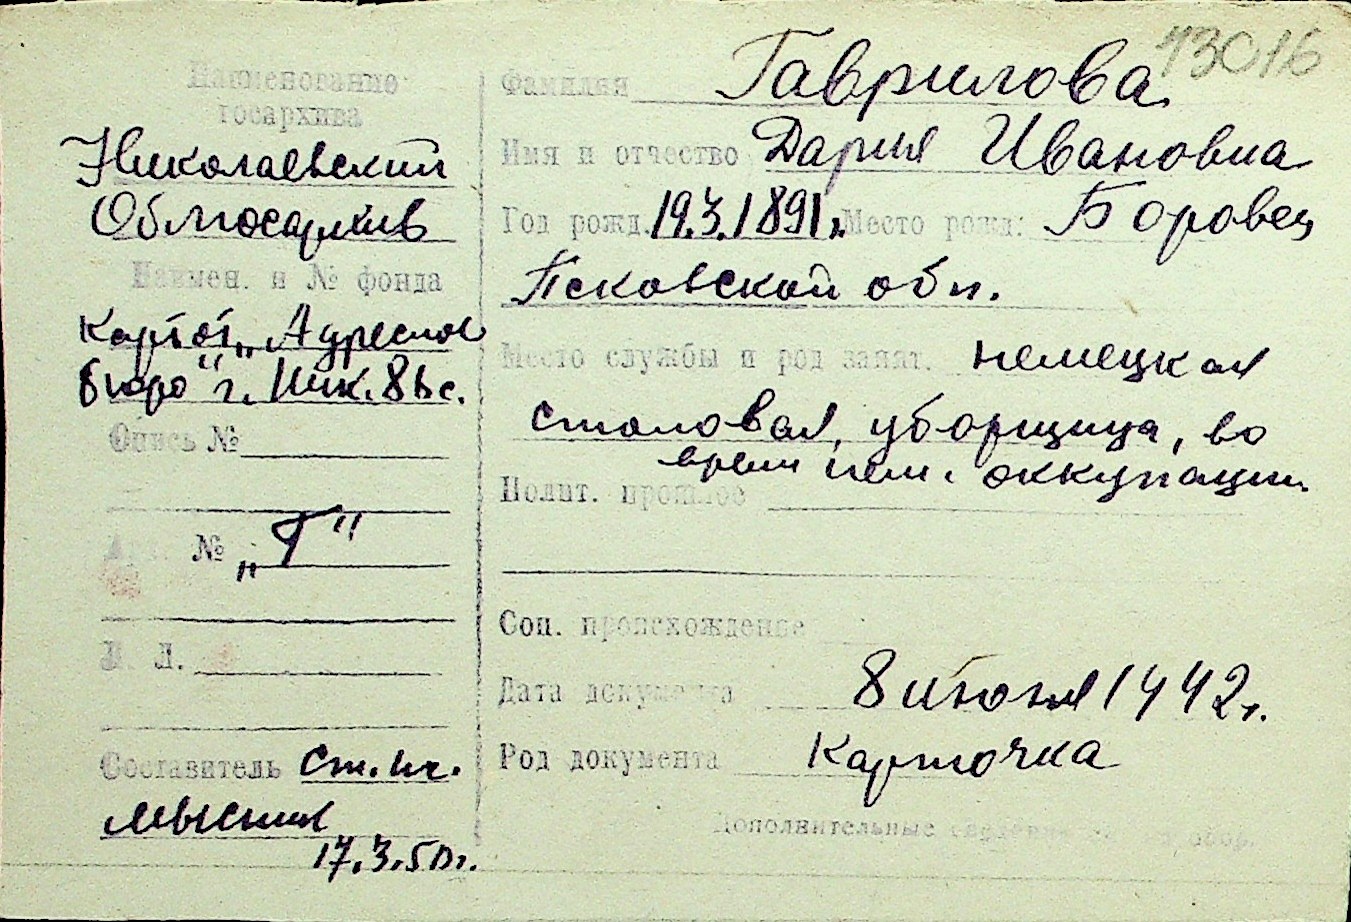 73016
Наименование
госархива
Николаевский
Облгосархив
Наимен. и № фонда
Картот. „Адресное
бюро" г. Ник.
Опись №
Арх. № „Г"
Л. Л.
Составитель Ст. ин.
17.3.50г.
Фамилия Гаврилова
Имя и отчество Дария Ивановна
Год рожд. 19.3.1891г. Место рожд: Боровец
Псковской обл.
Место службы и род занят. немецкая
столовая, уборщица, во
время нем. оккупации.
Полит. прошлое
Соц. происхождение
Дата документа 8 июня 1942г.
Род документа Карточка
Дополнительные сведения на обор.